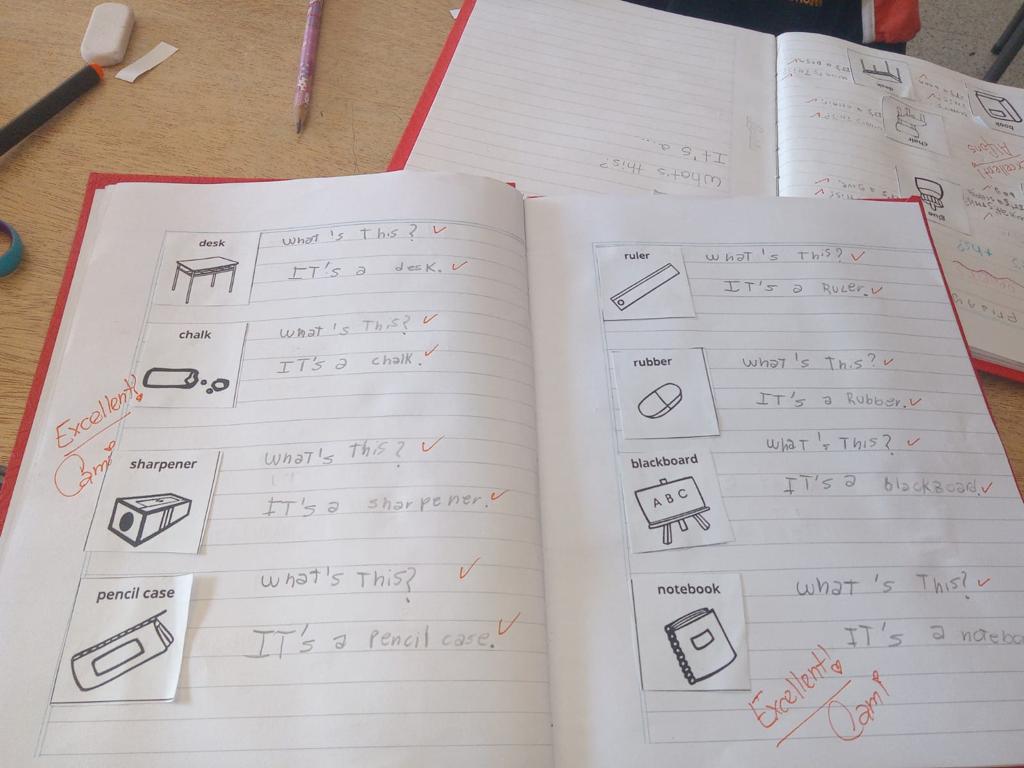 desk
What's This?
IT's a desk.
chalk
What's This?
IT's a chalk.
Excellent!
Cami
sharpener
What's This?
IT's a sharpener.
pencil case
What's This?
IT's a Pencil case.
ruler
What's This?
IT's a RuLer.
rubber
What's This?
IT's a Rubber.
blackboard
A B C
What's This?
IT's a blackboard.
notebook
What's This?
IT's a
Excellent!
Cami
What's this?
It's a...
desk
book
chair
glue